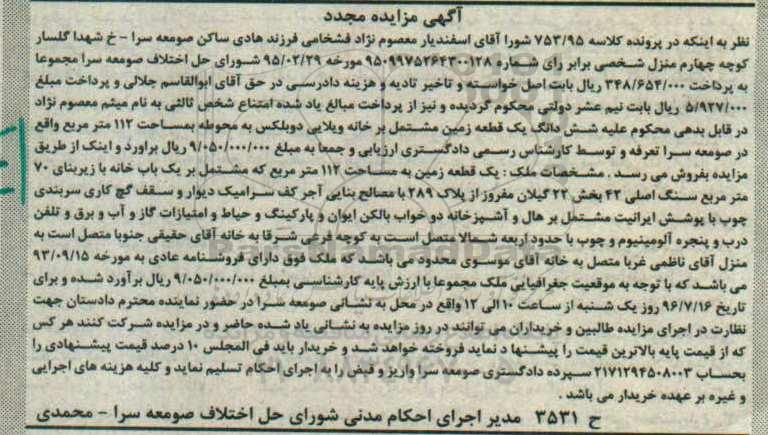 آگهی مزایده مجدد
نظر به اینکه در پرونده کلاسه ۷۵۳/۹۵ شورا آقای اسفندیار معصوم نژاد فشخامی فرزند هادی ساکن صومعه سرا - خ شهدا گلسار
کوچه چهارم منزل شخصی برابر رای شماره ۹۵۰۹۹۷۵۲۶۴۳۰۰۱۲۸ مورخه ۹۵/۰۲/۲۹ شورای حل اختلاف صومعه سرا مجموعا
به پرداخت ۳۴۸/۶۵۴/۰۰۰ ریال بابت اصل خواسته و تاخیر تادیه و هزینه دادرسی در حق آقای ابوالقاسم جلالی و پرداخت مبلغ
۵/۹۲۷/۰۰۰ ریال بابت نیم عشر دولتی محکوم گردیده و نیز از پرداخت مبالغ یاد شده امتناع شخص ثالثی به نام میثم معصوم نژاد
در قابل بدهی محکوم علیه شش دانگ یک قطعه زمین مشتمل بر خانه ویلایی دوبلکس به محوطه بمساحت ۱۱۲ متر مربع واقع
در صومعه سرا تعرفه و توسط کارشناس رسمی دادگستری ارزیابی و جمعا به مبلغ ۹/۰۵۰/۰۰۰/۰۰۰ ریال براورد و اینک از طریق
مزایده بفروش می رسد . مشخصات ملک : یک قطعه زمین به مساحت ۱۱۲ متر مربع که مشتمل بر یک باب خانه با زیربنای ۷۰
متر مربع سنگ اصلی ۴۲ بخش ۲۲ گیلان مفروز از پلاک ۲۸۹ با مصالح بنایی آجر کف سرامیک دیوار و سقف گچ کاری سربندی
چوب با پوشش ایرانیت مشتمل بر هال و آشپزخانه دو خواب بالکن ایوان و پارکینگ و حیاط و امتیازات گاز و آب و برق و تلفن
درب و پنجره آلومینیوم و چوب با حدود اربعه شمالا متصل است به کوچه فرعی شرقا به خانه آقای حقیقی جنوبا متصل است به
منزل آقای ناظمی غربا متصل به خانه آقای موسوی محدود می باشد که ملک فوق دارای فروشنامه عادی به مورخه ۹۳/۰۹/۱۵
می باشد که با توجه به موقعیت جغرافیایی ملک مجموعا با ارزش پایه کارشناسی بمبلغ ۹/۰۵۰/۰۰۰/۰۰۰ ریال برآورد شده و برای
تاریخ ۹۶/۷/۱۶ روز یک شنبه از ساعت ۱۰ الی ۱۲ واقع در محل به نشانی صومعه سرا در حضور نماینده محترم دادستان جهت
نظارت در اجرای مزایده طالبین و خریداران می توانند در روز مزایده به نشانی یاد شده حاضر و در مزایده شرکت کنند هر کس
که از قیمت پایه بالاترین قیمت را پیشنها د نماید فروخته خواهد شد و خریدار باید فی المجلس ۱۰ درصد قیمت پیشنهادی را
بحساب ۲۱۷۱۲۹۴۵۰۸۰۰۳ سپرده دادگستری صومعه سرا واریز و قبض را به اجرای احکام تسلیم نماید و کلیه هزینه های اجرایی
و غیره بر عهده خریدار می باشد .
ح ۳۵۳۱ مدیر اجرای احکام مدنی شورای حل اختلاف صومعه سرا - محمدی